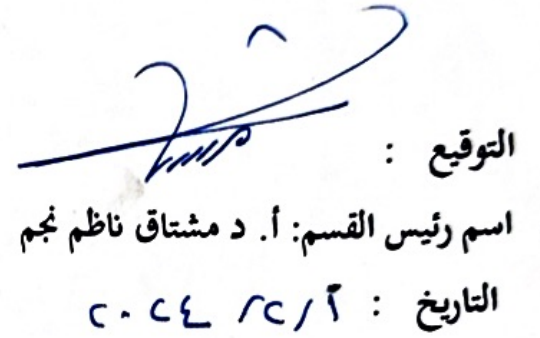 التوقيع :
اسم رئيس القسم: أ. د مشتاق ناظم نجم
التاريخ : ٢ / ٢ / ٢٠٢٤